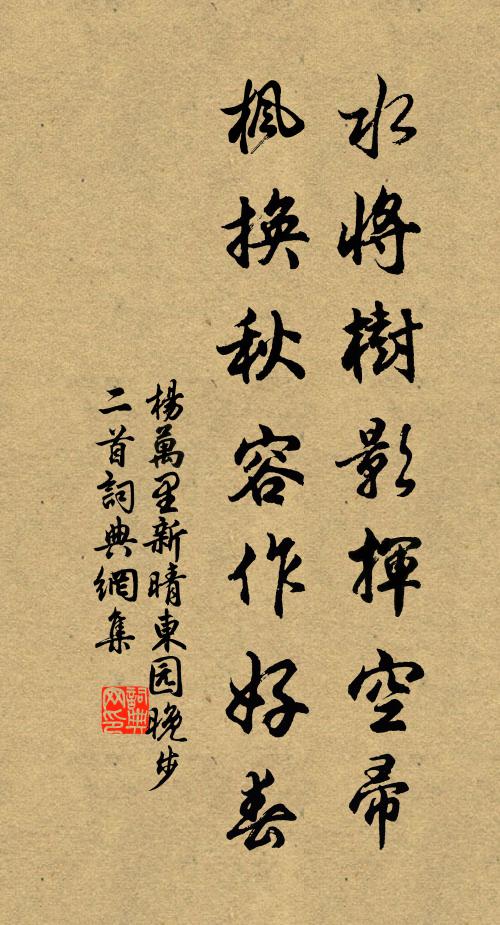 水將樹影揮空帚
楓換秋容作好春
楊萬里新晴東园晚步
二首詞典網集
詞典网印